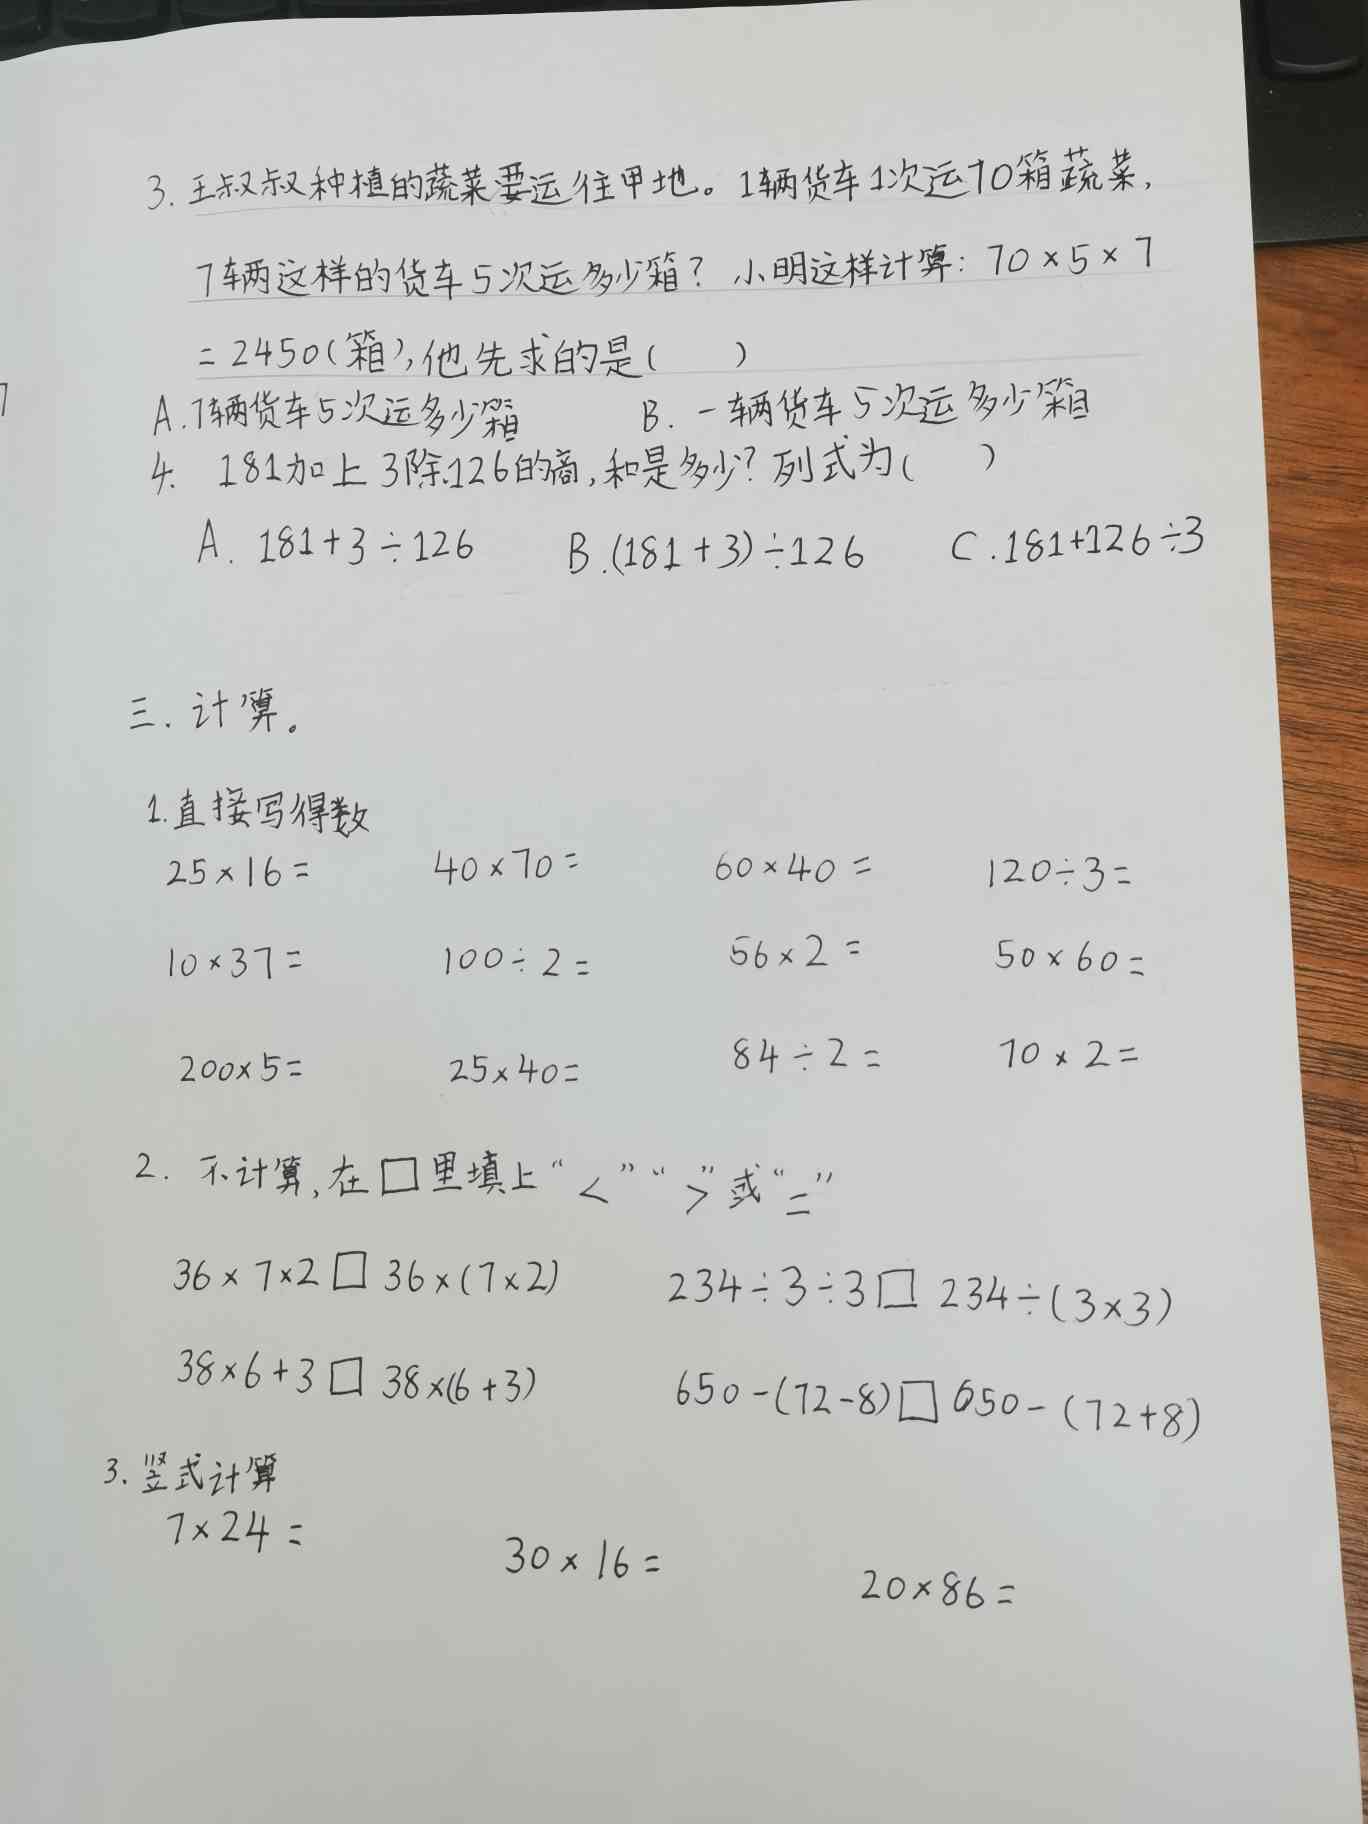 3. 王叔叔种植的蔬菜要运往甲地。1辆货车1次运70箱蔬菜,
7辆这样的货车5次运多少箱? 小明这样计算: 70×5×7
=2450(箱),他先求的是(    )
A.7辆货车5次运多少箱    B. 一辆货车5次运多少箱
4. 181加上3除126的商,和是多少?列式为(    )
A. 181+3÷126    B.(181+3)÷126    C.181+126÷3
三. 计算。
1.直接写得数
25×16=    40×70=    60×40=    120÷3=
10×37=    100÷2=    56×2=    50×60=
200×5=    25×40=    84÷2=    70×2=
2. 不计算,在□里填上“<”“>”或“=”
36×7×2□36×(7×2)    234÷3÷3□234÷(3×3)
38×6+3□38×(6+3)    650-(72-8)□650-(72+8)
3.竖式计算
7×24=    30×16=    20×86=